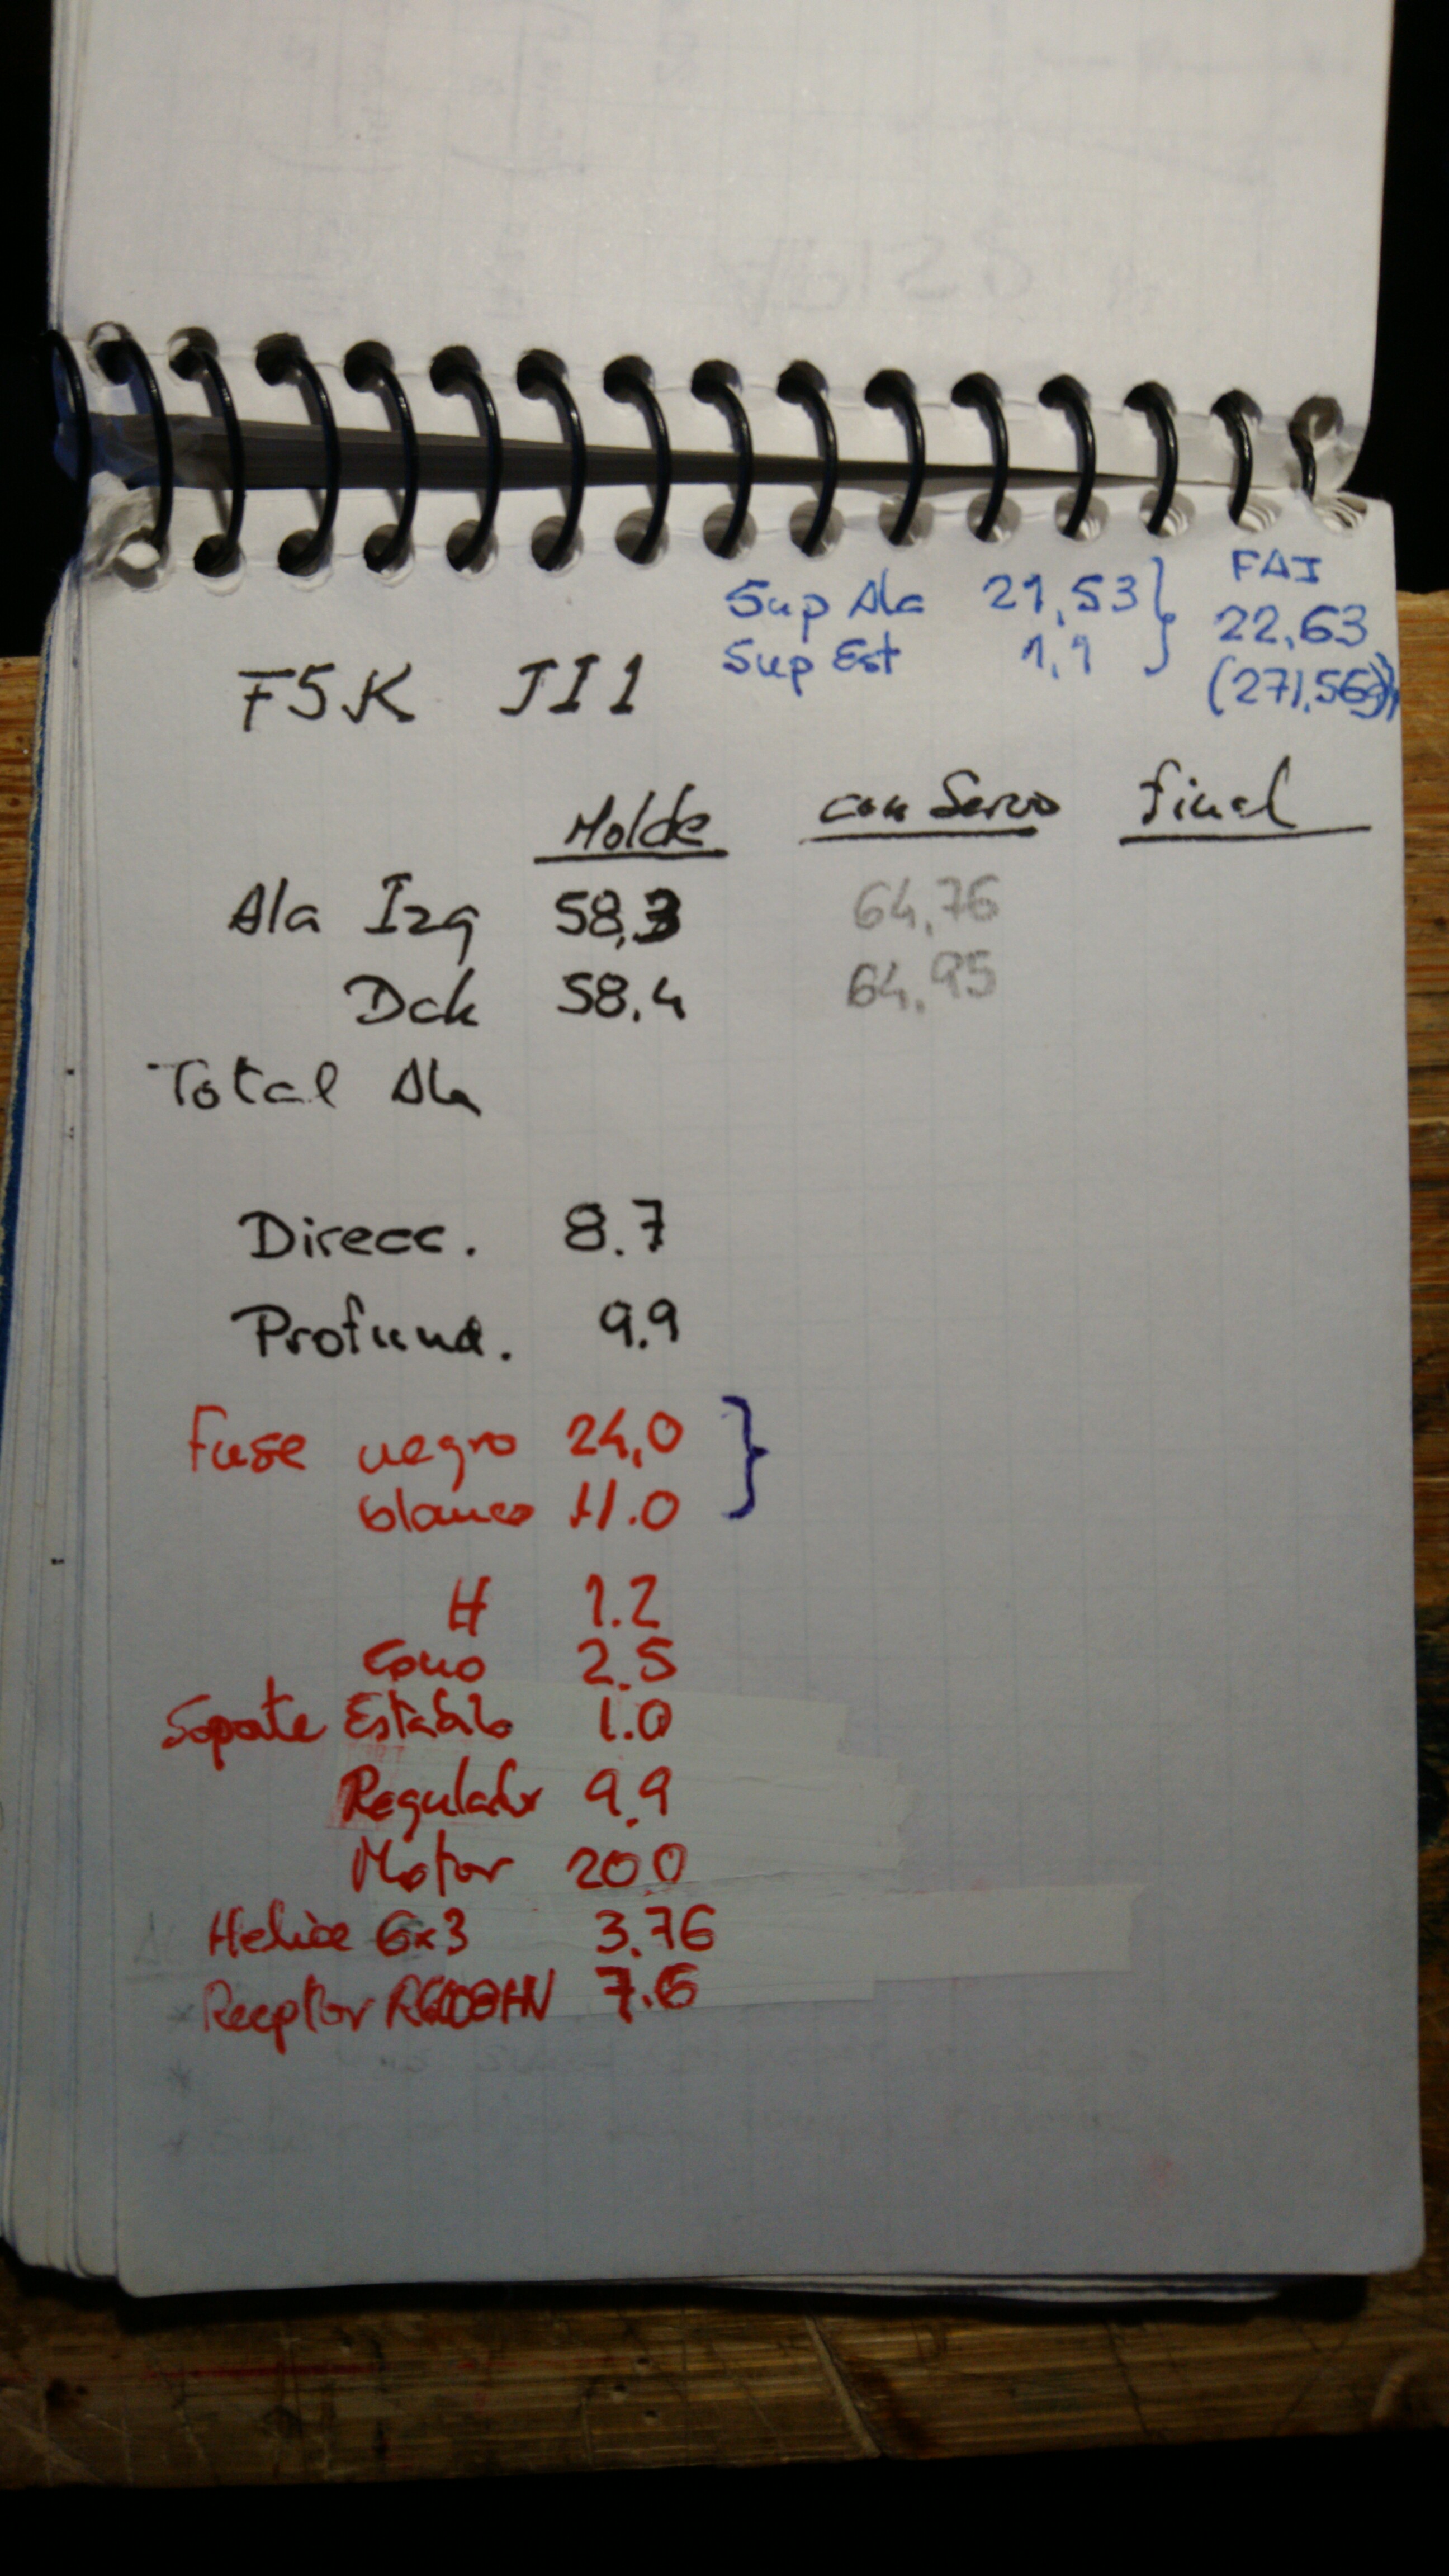 Sup Ala 21,53 } FAI
Sup Est 1,1 22,63
(271,56g)
F5K JII1
Molde con Servo Final
Ala Izq 58,3 64,76
Dch 58,4 64,95
Total Ala
Direcc. 8.7
Profund. 9.9
Fuse negro 24,0 }
blanco 11.0
H 1.2
Cono 2.5
Soporte Estabilo 1.0
Regulador 9.9
Motor 20.0
Helice 6x3 3.76
Receptor 7.6